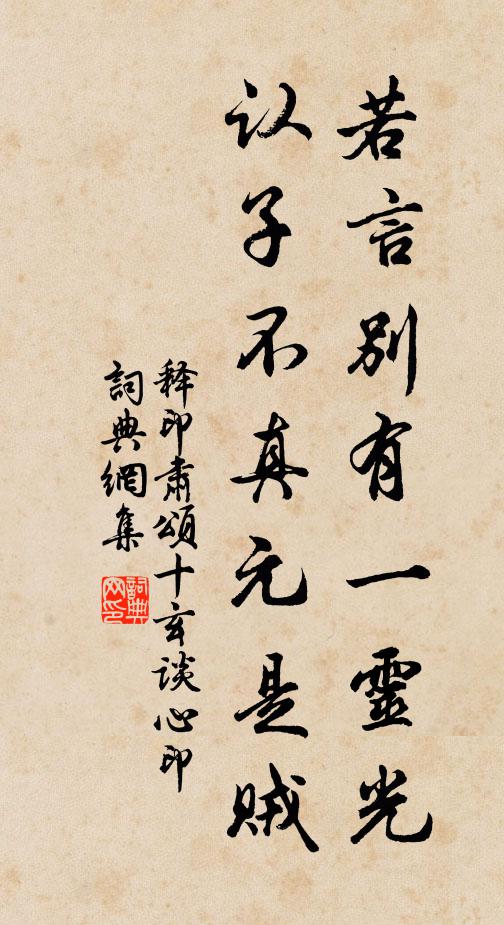 若言别有一靈光
认子不真元是贼
释印肃頌十玄谈心印
詞典網集
詞典
网印